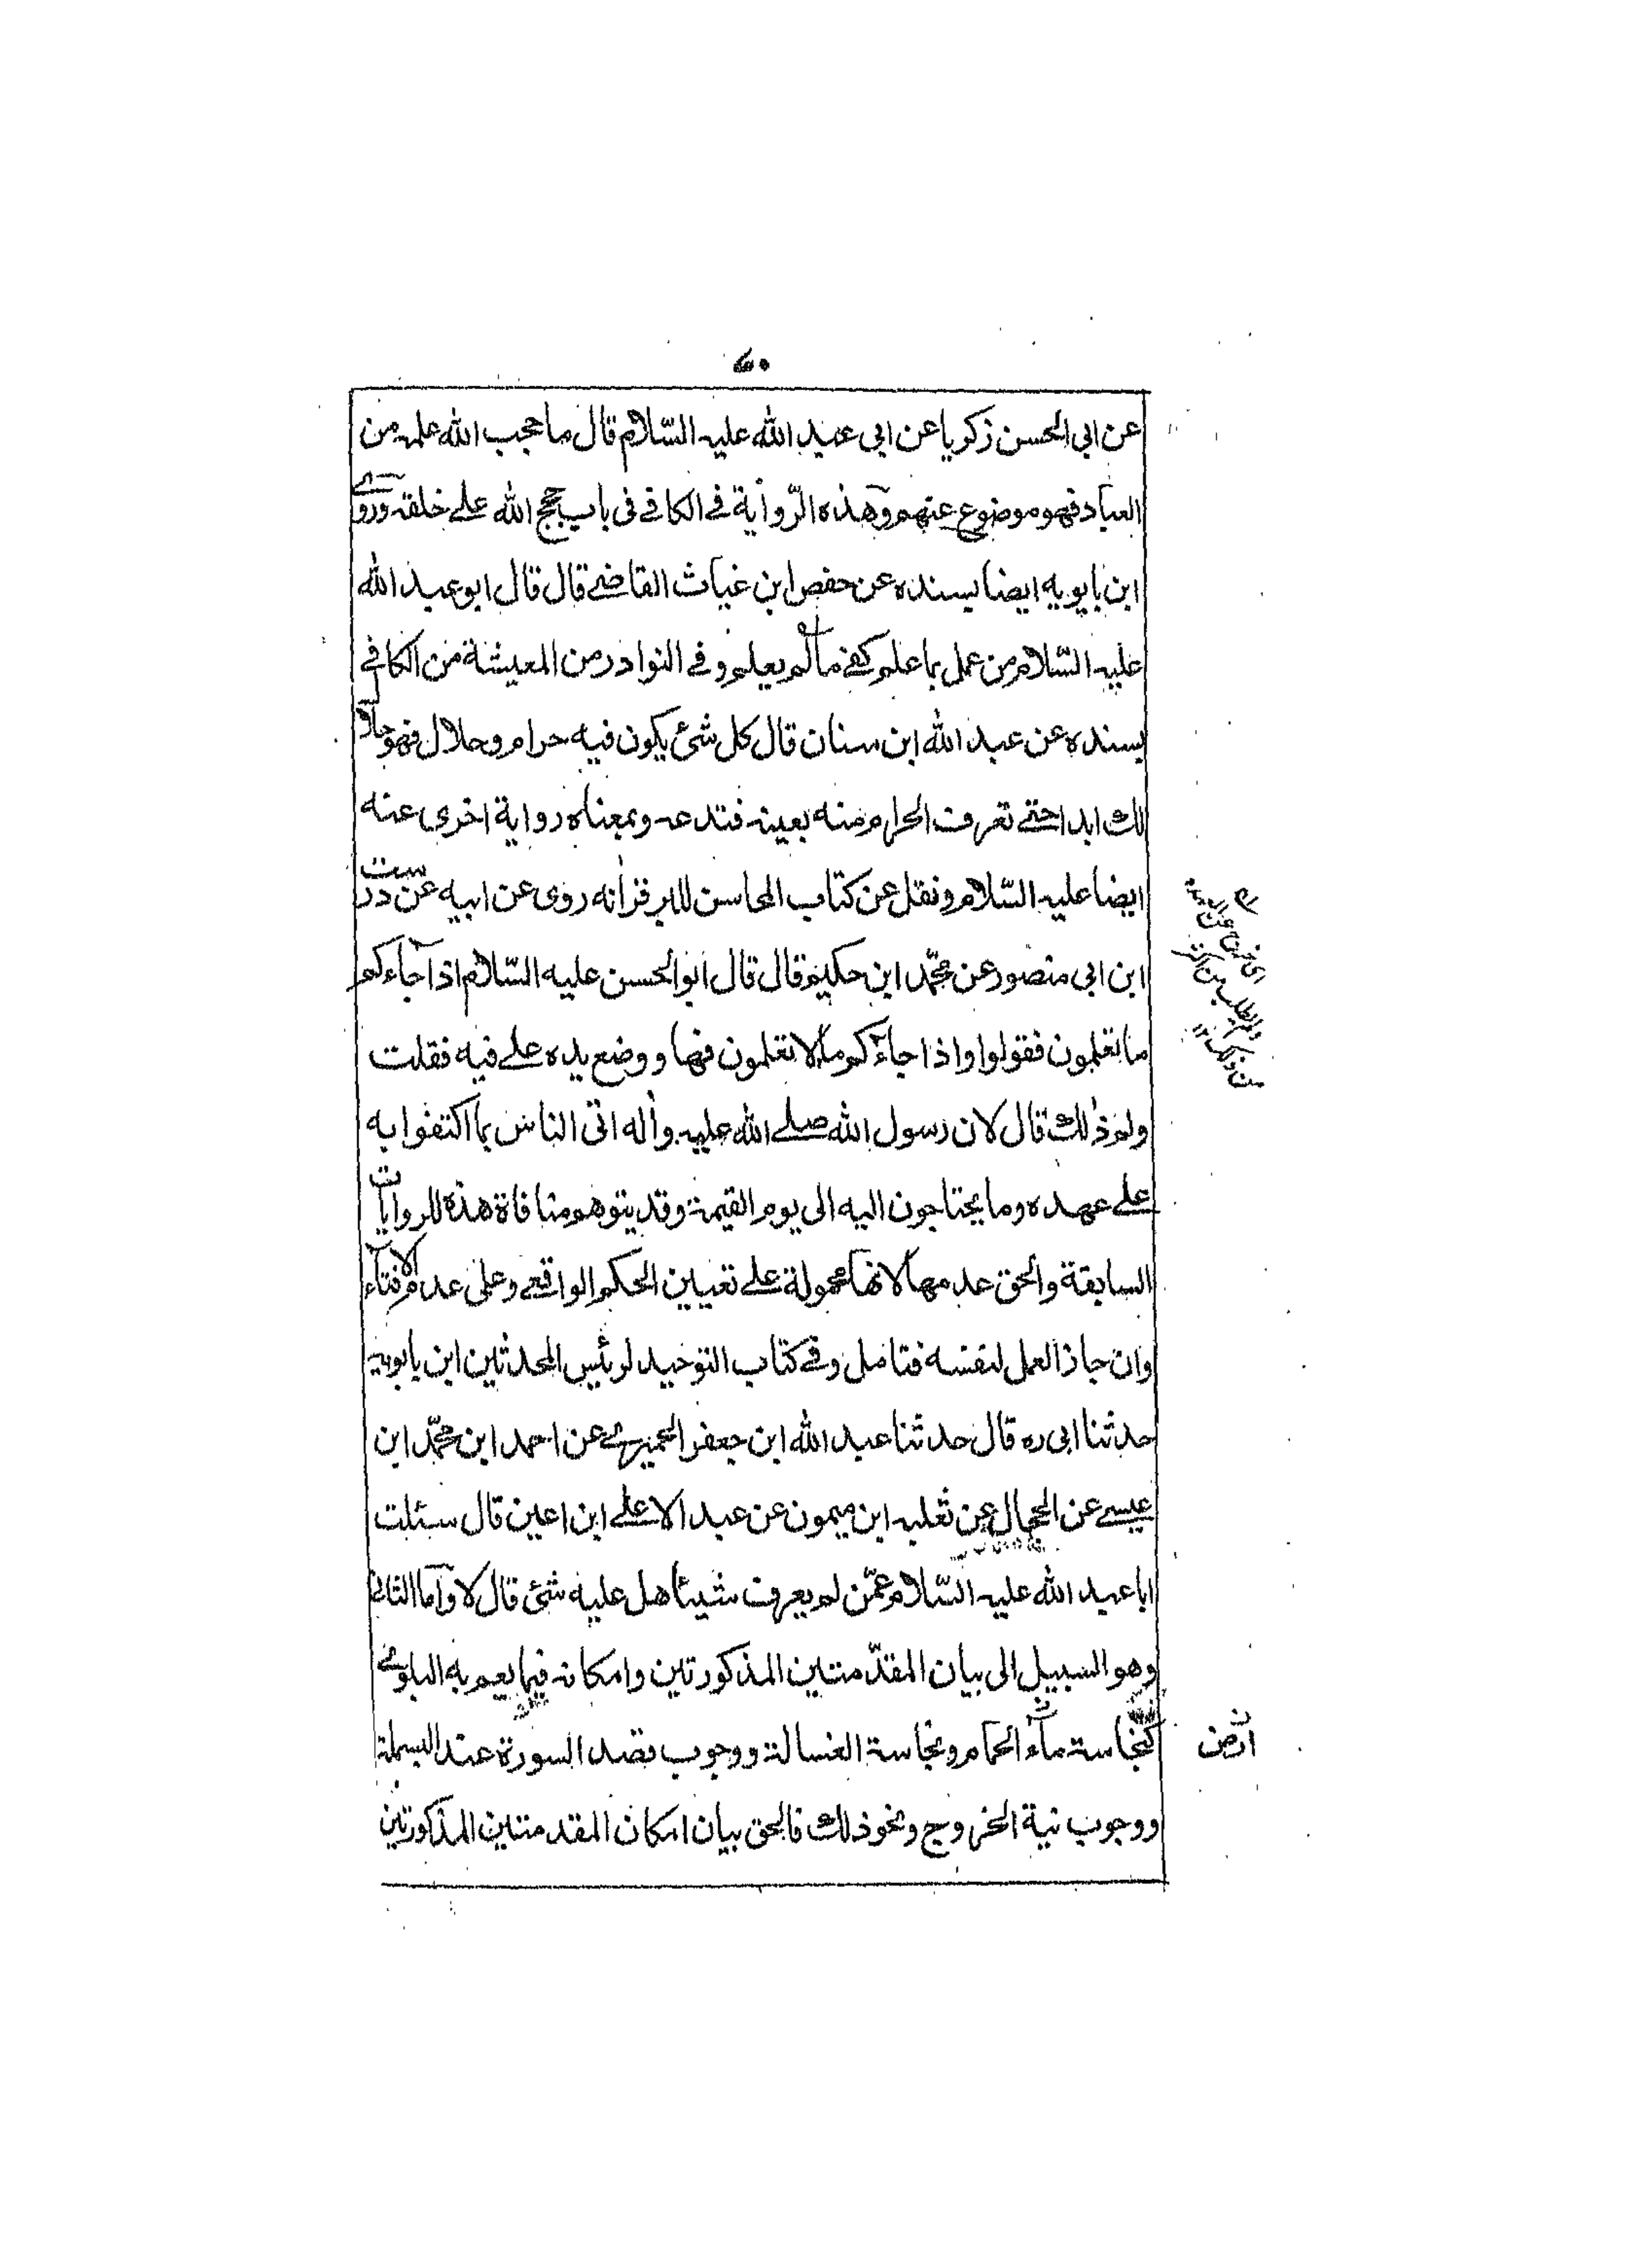 عن ابى الحسن زكريا عن ابى عبد الله عليه السّلام قال ما حجب الله علمه من
العباد فهو موضوع عنهم وهذه الرّواية فے الكافے فى باب حجج الله علے خلقه وروے
ابن بابويه ايضا بسنده عن حفص ابن غياث القاضے قال قال ابو عبد الله
عليه السّلام من عمل بما علم كفے ما لم يعلم وفے النوادر من المعيشة من الكافے
بسنده عن عبد الله ابن سنان قال كل شئ يكون فيه حرام وحلال فهو حلال
لك ابدا حتے تعرف الحرام منه بعينه فتدعه وبمعناه رواية اخرى عنه
ايضا عليه السّلام ونقل عن كتاب المحاسن للبرقے انه روى عن ابيه عن درست
ابن ابى منصور عن محمّد ابن حكيم قال قال ابو الحسن عليه السّلام اذا جاءكم
ما تعلمون فقولوا واذا جاءكم ما لا تعلمون فها ووضع يده علے فيه فقلت
ولم ذلك قال لان رسول الله صلے الله عليه وآله اتى الناس بما اكتفوا به
علے عهده وما يحتاجون اليه الى يوم القيمة وقد يتوهم منافاة هذه للروايات
السابقة والحق عدمها لانها محمولة علے تعيين الحكم الواقعے وعلى عدم الافتاء
وان جاز العمل لنفسه فتامل وفے كتاب التوحيد لرئيس المحدثين ابن بابويه
حدثنا ابى ره قال حدثنا عبد الله ابن جعفر الحميرے عن احمد ابن محمّد ابن
عيسے عن الحجال عن ثعلبه ابن ميمون عن عبد الاعلے ابن اعين قال سئلت
ابا عبد الله عليه السّلام عمّن لم يعرف شيئا هل عليه شئ قال لا واما الثانى
وهو السبيل الى بيان المقدّمتين المذكورتين وامكانه فيما يعم به البلوے
كنجاسة ماء الحمام ونجاسة الغسالة ووجوب قصد السورة عند البسملة
ووجوب نية الخروج ونحو ذلك فالحق بيان امكان المقدمتين المذكورتين